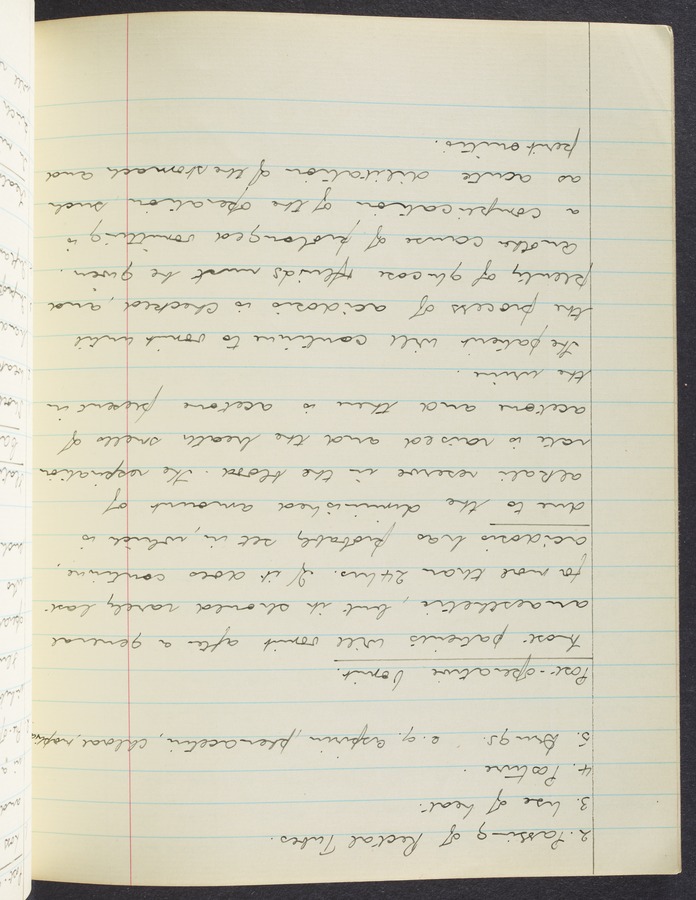 2. Passing of Rectal Tubes.
3. Use of heat.
4. Posture.
5. Drugs. e.g. aspirin, phenacetin, chloral,
Post-operative Vomit.
Most patients will vomit after a general
anaesthetic, but it should rarely last
for more than 24 hrs. If it does continue,
acidosis has probably set in, which is
due to the diminished amount of
alkali reserve in the blood. The respiration
rate is raised and the breath smells of
acetone and there is acetone present in
the urine.
The patient will continue to vomit until
the process of acidosis is checked, and
plenty of glucose fluids must be given.
Another cause of prolonged vomiting is
a complication of the operation such
as acute dilitation of the stomach and
peritonitis.